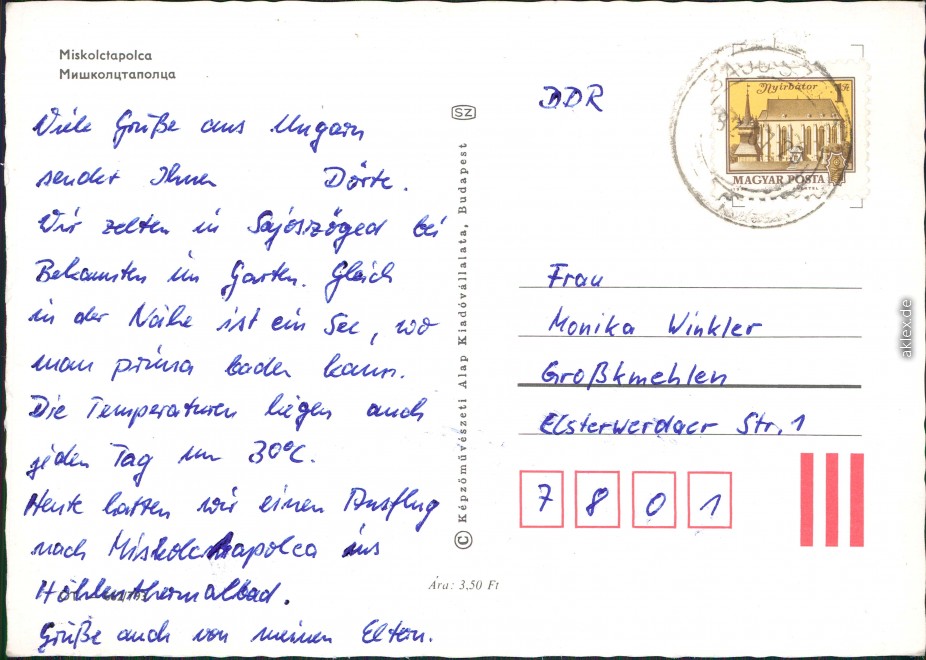 Miskolctapolca
Мишколцтаполца
Viele Grüße aus Ungarn
sendet Ihnen Dörte.
Wir zelten in Sajószöged bei
Bekannten im Garten. Gleich
in der Nähe ist ein See, wo
man prima baden kann.
Die Temperaturen liegen auch
jeden Tag um 30°C.
Heute hatten wir einen Ausflug
nach Miskolctapolca ins
Höhlenthermalbad.
Grüße auch von meinen Eltern.
SZ
© Képzőművészeti Alap Kiadóvállalata, Budapest
Ára: 3,50 Ft
DDR
Nyírbátor
1Ft
MAGYAR POSTA
Frau
Monika Winkler
Großkmehlen
Elsterwerdaer Str. 1
7 8 0 1
aklex.de